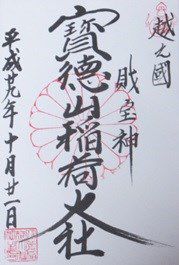 越之國
財宝神
寳徳山稲荷大社
平成廿九年十月廿一日